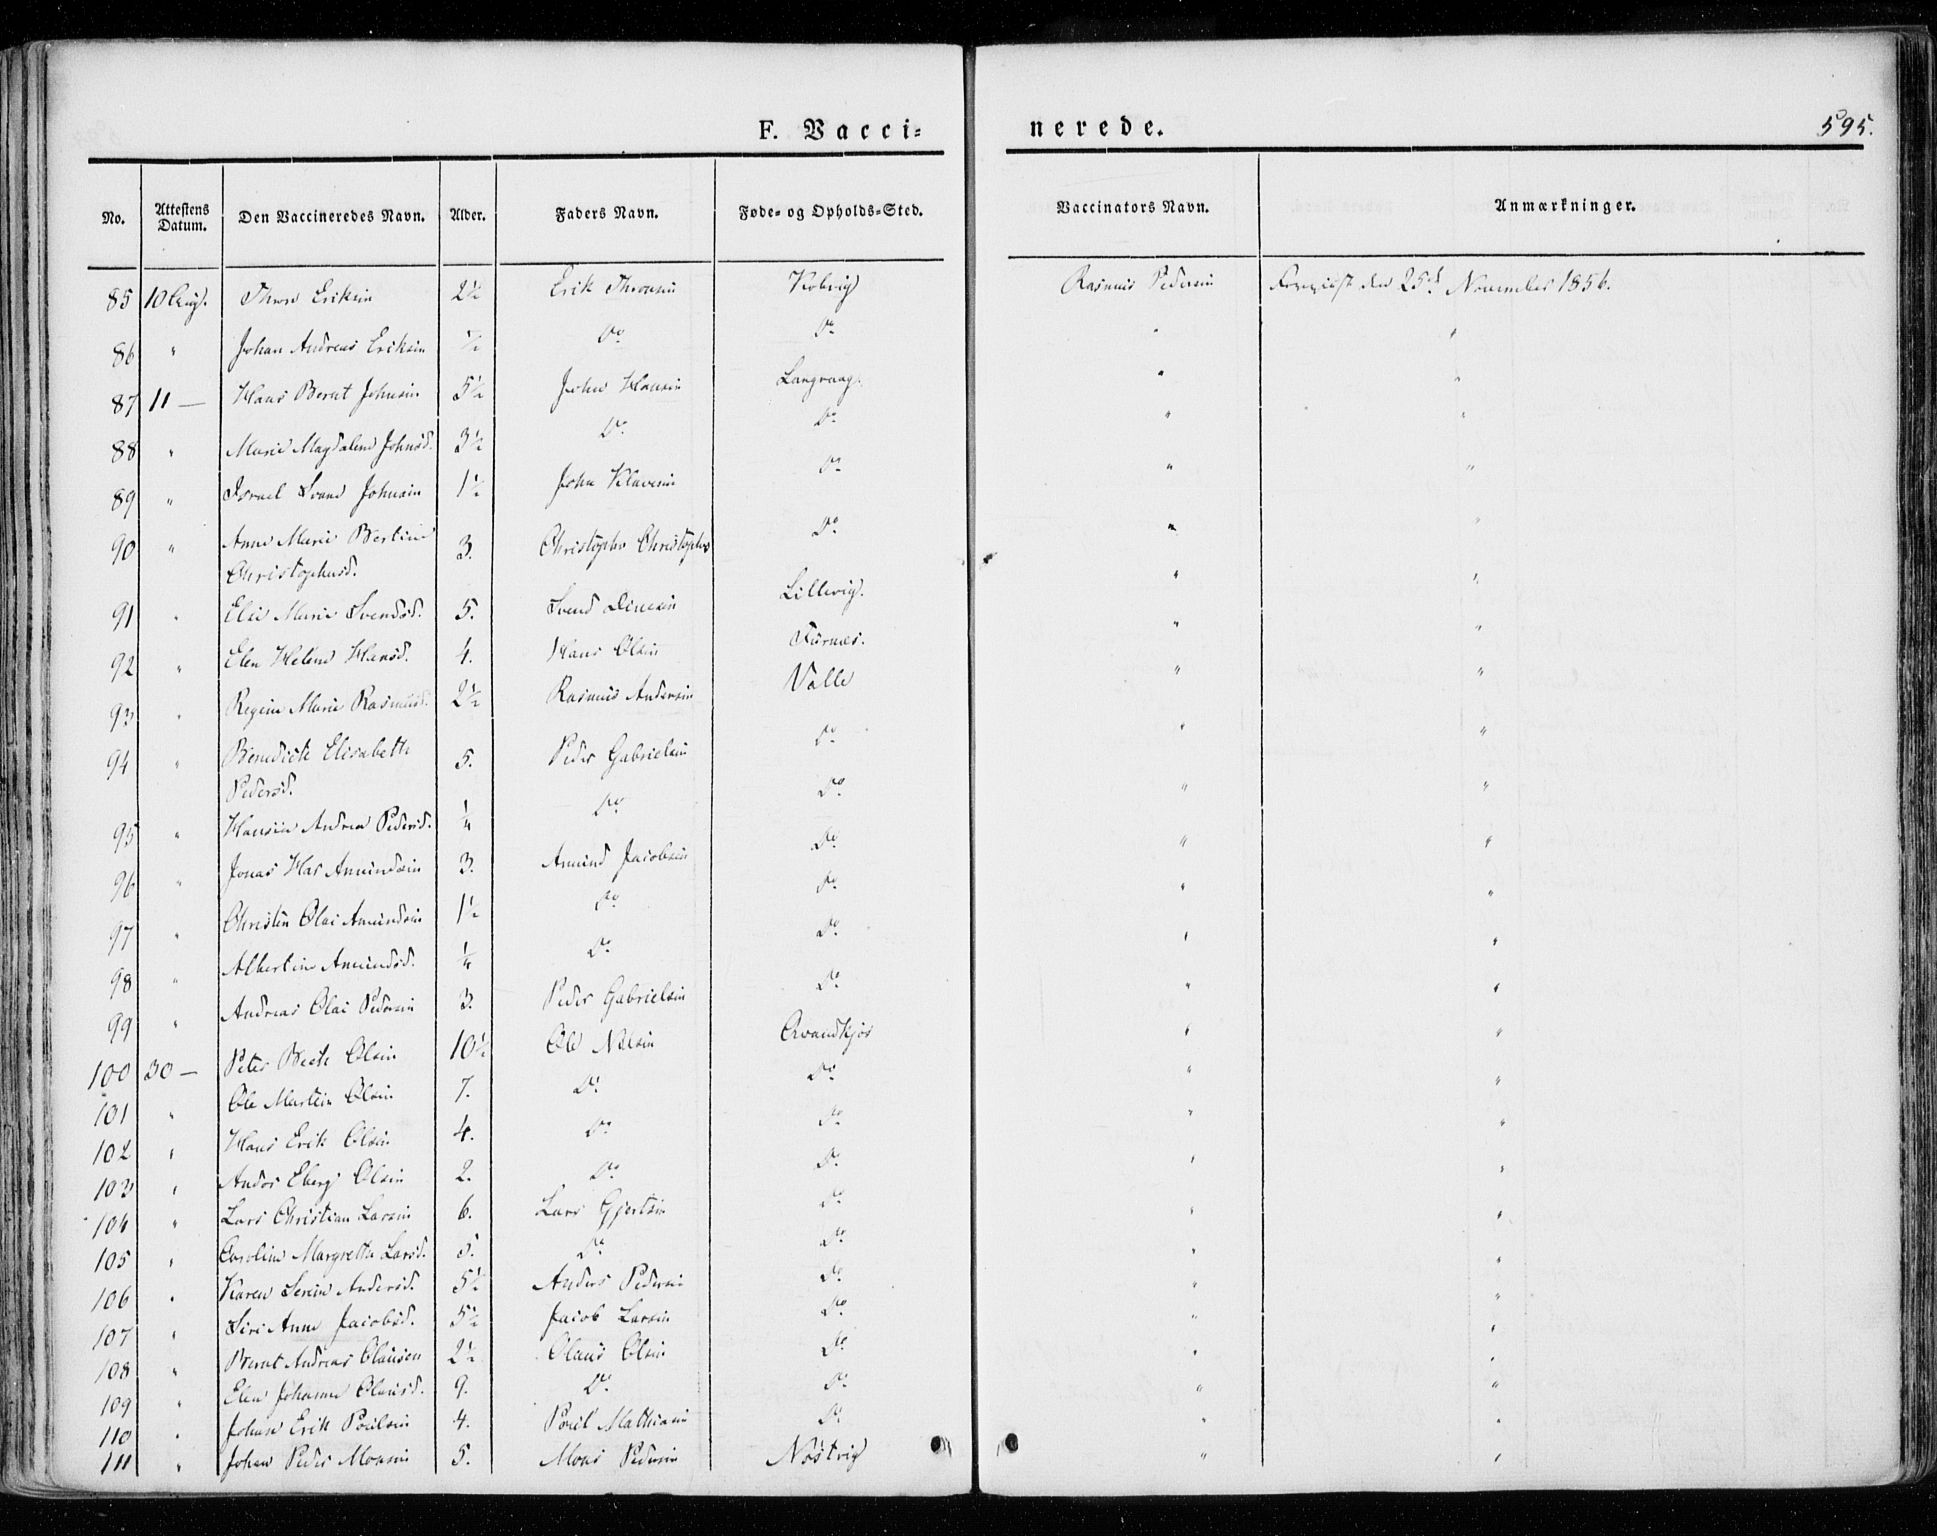 F. Vacci=
nerede.
595.
No. Attestens Datum. Den Vaccineredes Navn. Alder. Faders Navn. Føde= og Opholds=Sted. Vaccinators Navn. Anmærkninger.
85 10 Aug. Thron Eriksen 2½ Erik Thronsen Kobvig Rasmus Pedersen den 25de November 1856.
86 " Johan Andreas Eriksen ½ Do Do " "
87 11 — Hans Bernt Johnsen 5½ John Hansen Langvaag. " "
88 " Marie Magdalene Johnsd. 3½ Do Do " "
89 " Israel Svane Johnsen 1½ John Klavesen Do " "
90 " Anne Marie Bertine 3. Christopher Christophers Do " "
Christophersd.
91 " Else Marie Svendsd. 5. Svend Lillevig. " "
92 " Elen Helene Hansd. 4. Hans Olsen Furnes. " "
93 " Regine Marie Rasmusd. 2½ Rasmus Andersen Valle " "
94 " Benedicte Elisabeth 5. Peder Gabrielsen Do " "
Pedersd.
95 " Hansine Andrea Pedersd. ¼ Do Do " "
96 " Jonas Amundsen 3. Amund Jacobsen Do " "
97 " Christen Olai Amundsen 1½ Do Do " "
98 " Albertine Amundsd. ¼ Do Do " "
99 " Andreas Olai Pedersen 3. Peder Gabrielsen Do " "
100 30 — Peter Olsen 10½ Ole Nilsen Qvandkjos " "
101 " Ole Martin Olsen 7. Do Do " "
102 " Hans Erik Olsen 4. Do Do " "
103 " Andor Eberg Olsen 2. Do Do " "
104 " Lars Christian Larsen 6. Lars Gjertsen Do " "
105 " Caroline Margrethe Larsd. 5. Do Do " "
106 " Karen Serine Andersd. 5½ Anders Pedersen Do " "
107 " Siri Anne Jacobsd. 5½ Jacob Larsen Do " "
108 " Bernt Andreas Olausen 2½ Olaus Olsen Do " "
109 " Elen Johanne Olausd. 9. Do Do " "
110 " Johan Erik Poulsen 4. Poul Mathiasen Do " "
111 " Johan Peder Monsen 5. Mons Pedersen Nøstvig " "